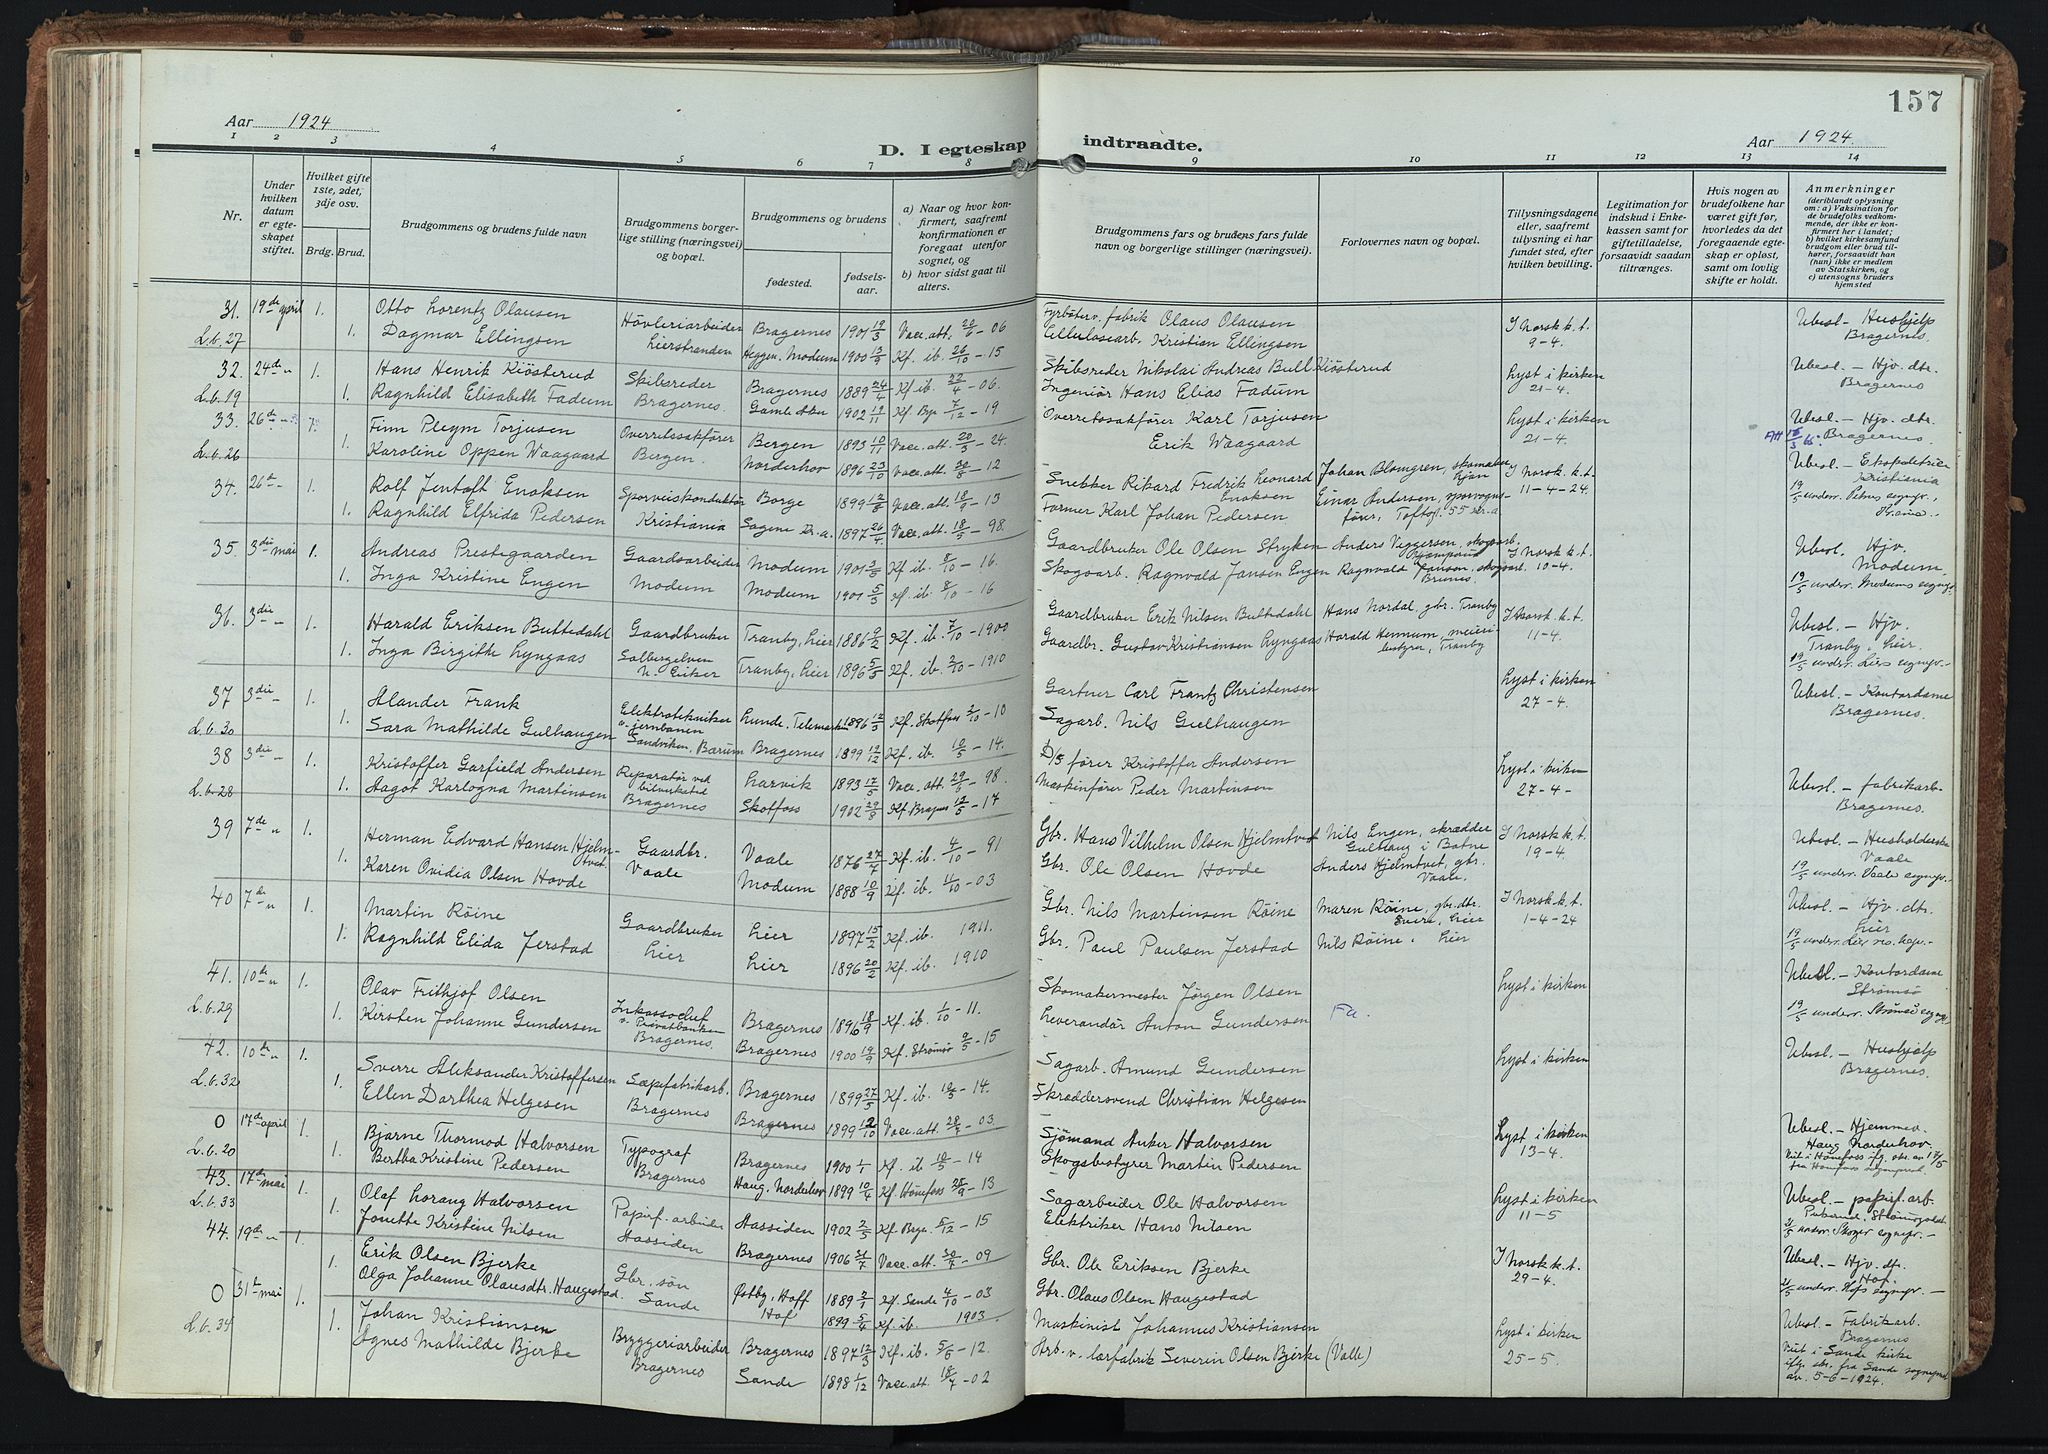 157
Aar 1924
Aar 1924
D. I egteskap indtraadte.
1 2 3 4 5 6 7 8 9 10 11 12 13 14
Nr.
Under hvilken datum er egteskapet stiftet.
Hvilket gifte 1ste, 2det, 3dje osv.
Brdg. Brud.
Brudgommens og brudens fulde navn
Brudgommens borgerlige stilling (næringsvei) og bopæl.
Brudgommens og brudens
fødested. fødselsaar.
a) Naar og hvor konfirmert, saafremt konfirmationen er foregaat utenfor sognet, og
b) hvor sidst gaat til alters.
Brudgommens fars og brudens fars fulde navn og borgerlige stillinger (næringsvei).
Forlovernes navn og bopæl.
Tillysningsdagene eller, saafremt tillysning ei har fundet sted, efter hvilken bevilling.
Legitimation for indskud i Enkekassen samt for giftetilladelse, forsaavidt saadan tiltrænges.
Hvis nogen av brudefolkene har været gift før, hvorledes da det foregaaende egteskap er opløst, samt om lovlig skifte er holdt.
Anmerkninger (deriblandt oplysning om: a) Vaksination for de brudefolks vedkommende, der ikke er konfirmert her i landet; b) hvilket kirkesamfund brudgom eller brud tilhører, forsaavidt han (hun) ikke er medlem av Statskirken, og c) utensogns bruders hjemsted
31. 19de april 1. Otto Lorentz Olausen Høvleriarbeider Bragernes 1901 19/3 Vacc. att. 20/6 - 06 Fyrbøter v. fabrik Olaus Olausen I Norsk k. t. Ubesl. - Hushjelp
L.b. 27 1. Dagmar Ellingsen Lierstranden Heggen, Modum 1900 13/9 Kf. ib. 26/10 - 15 Cellulosearb. Kristian Ellingsen 9-4. Bragernes.
32. 24de " 1. Hans Henrik Kiøsterud Skibsreder Bragernes 1889 24/4 Kf. ib. 22/4 - 06. Skibsreder Nikolai Andreas Bull Kiøsterud Lyst i kirken Ubesl. - Hjv. dtr.
L.b. 19 1. Ragnhild Elisabeth Fadum Bragernes. Gamle Aker 1902 19/11 Kf. Bye 7/12 - 19 Ingeniør Hans Elias Fadum 21-4. Bragernes
33. 26de - Finn Pleym Torjusen Overretssakfører Bergen 1893 10/11 Vacc. att. 20/3 - 24. Overretssakfører Karl Torjusen Lyst i kirken Ubesl. - Hjv. dtr.
L.b. 26 1. Karoline Oppen Waagaard Bergen. Norderhov 1896 23/10 Vacc. att. 30/8 - 12 Erik Waagaard 21-4. Bragernes.
34. 26de - 1. Rolf Jentoft Enoksen Sporveiskonduktør Borge 1899 12/5 Vacc. att. 18/9 - 13 Snekker Rikard Fredrik Leonard Enoksen Johan Blomgren, skomaker I Norsk k. t. Ubesl. - Ekspeditrice Kristiania
1. Ragnhild Elfrida Pedersen Kristiania Sagene Kr.a. 1897 26/4 Vacc. att. 18/5 - 98. Former Karl Johan Pedersen Einar Andersen, sporvognsfører, Toftesgt. 55 Kr.a 11-4-24.
35. 3die mai 1. Andreas Prestegaarden Gaardsarbeider Modum 1901 Kf. ib. 8/10 - 16. Gaardbruker Ole Olsen Stryken Anders Viggersen, skogsarb. I Norsk k. t. Ubesl. Hjv. Modum.
1. Inga Kristine Engen Modum Modum 1901 5/3 Kf. ib. 8/10 - 16 Skogsarb. Ragnvald Jansen Engen Ragnvald Jansen, skogsarb. 10-4. 19/5 underr. Modums sognepr.
36. 3die - 1. Harald Eriksen Buttedahl Gaardbruker Tranby, Lier 1886 9/2 Kf. ib. 7/10 - 1900 Gaardbruker Erik Nilsen Buttedahl Hans Nordal, gbr. Tranby I Norsk k. t. Ubesl. - Hjv.
1. Inga Bergitte Lyngaas Solbergelven N. Eiker Tranby, Lier 1896 5/5 Kf. ib. 2/10 - 1910 Gaardbr. Gustav Kristiansen Lyngaas Harald Hennum, meieribestyrer, Tranby 11-4. Tranby i Lier. 19/5 underr. Liers sognepr.-
37 3die - 1. Alander Frank Elektrotekniker v. jernbanen Lunde, Telemarken 1896 12/5 Kf. Skotfoss 2/10 - 10 Gartner Carl Frantz Christensen Lyst i kirken Ubesl. - Kontordame
L.b. 30 1. Sara Mathilde Gulhaugen Sandviken, Bærum Bragernes 1899 19/12 Kf. ib. 10/5 - 14. Sagarb. Nils Gulhaugen 27-4. Bragernes.
38 3die - 1. Kristoffer Garfield Andersen Reparatør ved bilverksted Larvik 1893 17/5 Vacc. att. 29/6 - 98. D/S fører Kristoffer Andersen Lyst i kirken Ubesl. - fabrikarb.
L.b. 28 1. Aagot Karlogna Martinsen Bragernes Skotfoss 1902 29/8 Kf. Bragernes - 17 Maskinfører Peder Martinsen 27-4- Bragernes.
39 7de " 1. Herman Edvard Hansen Hjelmtvet. Gaardbr. Vaale 1876 27/7 Kf. ib. 4/10 - 91 Gbr. Hans Vilhelm Olsen Hjelmtvedt Nils Engen, skrædder I Norsk k. t. Ubesl. - Husholderske Vaale
1. Karen Ovidia Olsen Hovde Vaale Modum 1888 10/9 Kf. ib. 4/10 - 03 Gbr. Ole Olsen Hovde Anders Hjelmtvet, gbr. Vaale. 19-4. 19/5 underr. Vaale sognepr.-
40 7de " 1. Martin Røine Gaardbruker Lier 1897 15/2 Kf. ib. 1911. Gbr. Nils Martinsen Røine Maren Røine, gbr. dtr. I Norsk k. t. Ubesl. - Hjv. dtr. Lier
1. Ragnhild Elida Jerstad Lier Lier 1896 20/2 Kf. ib. 1910 Gbr. Paul Paulsen Jerstad Nils Røine, Lier 1-4-24 19/5 underr. Lier
41. 10de " 1. Olav Frithjof Olsen Inkassochef v. Privatbanken Bragernes 1896 18/9 Kf. ib. 1/10 - 11. Skomakermester Jørgen Olsen Lyst i kirken Ubesl. - Kontordame Strømsø
L.b. 29 1. Kersten Johanne Gundersen Bragernes. Bragernes 1900 19/9 Kf. Strømsø 9/5 - 15 Leverandør Anton Gundersen Fa. 19/5 underr. Strømsø sognepr.
42. 10de " 1. Sverre Aleksander Kristoffersen Sæpefabrikarb. Bragernes 1899 27/5 Kf. ib. 10/5 - 14. Sagarb. Amund Gundersen Lyst i kirken Ubesl. - Hushjelp
L.b. 32 1. Ellen Dorthea Helgesen Bragernes Bragernes 1899 12/10 Vacc. att. 28/7 - 03 Skræddersvend Christian Helgesen Bragernes.
0 17de april 1. Bjarne Thormod Halvorsen Typograf Bragernes 1900 1/1 Kf. ib 10/5 - 14 Sjømand Anker Halvorsen Lyst i kirken Ubesl. - Hjemmev. Haug Norderhov.
L.b. 20 1. Bertha Kristine Pedersen Bragernes Haug, Norderhov 1899 10/4 Kf. Hønefoss 25/9 - 13 Skogsbestyrer Martin Pedersen 13-4. Viet i Hønefoss ifg. skr. av fra Hønefoss sogneprest.
43. 17de mai 1. Olaf Lorang Halvorsen Papirf. arbeider Aassiden 1902 2/5 Kf. Brge. 5/12 - 15 Sagarbeider Ole Halvorsen Lyst i kirken Ubesl. - papirf. arb.
L.b. 33 1. Jonette Kristine Nilsen Aassiden Bragernes 1906 31/7 Vacc. att. 30/7 - 09 Elektriker Hans Nilsen 11-5 underr. Skoger sognepr. -
44. 19de " 1. Erik Olsen Bjerke Gbr. søn Østby, Hoff 1889 2/1 Kf. Sande 4/10 - 03 Gbr. Ole Eriksen Bjerke I Norsk k. t. Ubesl. - Hjv. dtr. Hof.
1. Olga Johanne Olausdtr. Haugestad. Sande Hof 1899 5/4 Kf. ib. 1903. Gbr. Olaus Olsen Haugestad 29-4. underr. Hofs sognepr. -
0 31te mai 1. Johan Kristiansen Bryggeriarbeider Bragernes 1897 12/3 Kf. ib. 5/6 - 12. Maskinist Johannes Kristiansen Lyst i kirken Ubesl. - Fabrikarb. Bragernes
L.b. 34 1. Agnes Mathilde Bjerke Bragernes Sande 1898 1/12 Vacc. att. 18/7 - 02 Arb. v. lærfabrik Severin Olsen Bjerke (Valle) 25-5. Viet i Sande kirke ifg. skr. fra Sande sogneprest av. 5-6-1924.